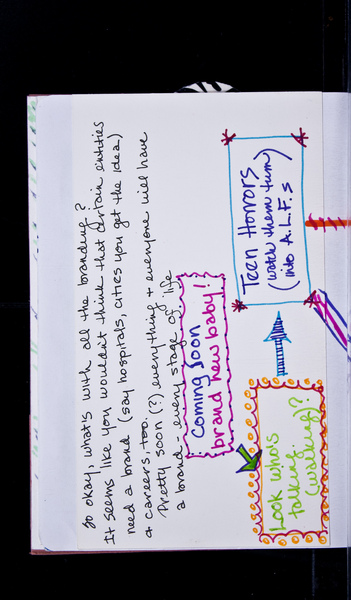 So okay, what's with all the branding?
It seems like you wouldn't think that certain entities
need a brand (say hospitals, cities you get the idea)
+ careers, too.
Pretty soon (?) everything + everyone will have
a brand - every stage of life
Coming Soon
brand new baby!!
Look who's
talking
(walking)?
Teen Horrors
(watch them turn
into A.L.F.s)